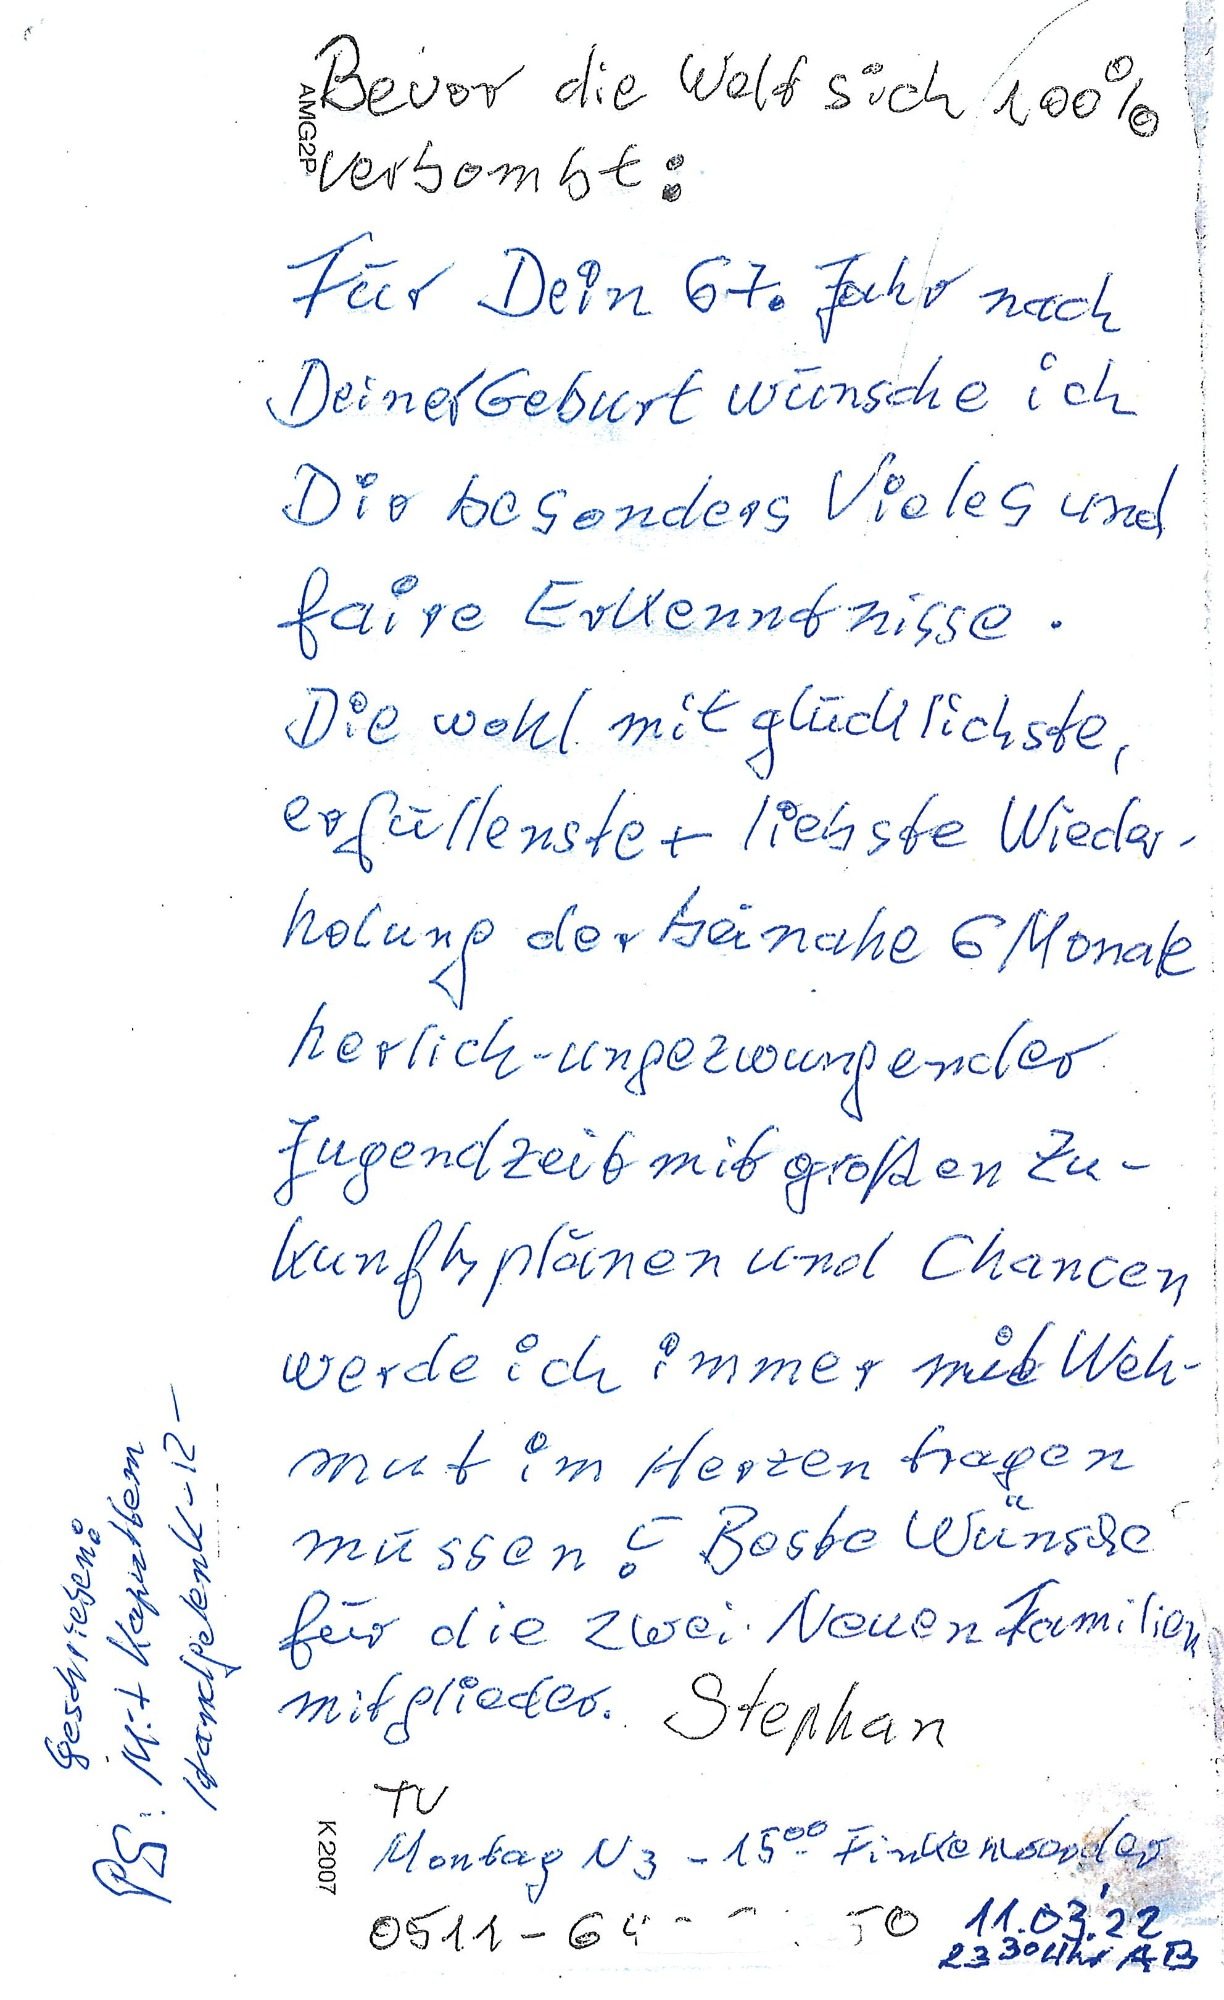 Bevor die Welt sich 100%
verbombt:
AMG2P
Für Dein 67. Jahr nach
Deiner Geburt wünsche ich
Dir besonders Vieles und
faire Erkenntnisse.
Die wohl mit glücklichste,
erfüllenste + liebste Wieder-
holung der beinahe 6 Monate
herlich-ungezwungender
Jugendzeit mit großen Zu-
kunftsplänen und Chancen
werde ich immer mit Weh-
mut im Herzen tragen
müssen! Beste Wünsche
für die zwei Neuen Familien
mitglieder. Stephan
PS: Geschrieben
Mit kaputtem
Handgelenk-12-
TV
Montag N3 - 15⁰⁰ Finkenwerder
K2007
0511-64 50
11.03.'22
23³⁰ Uhr AB